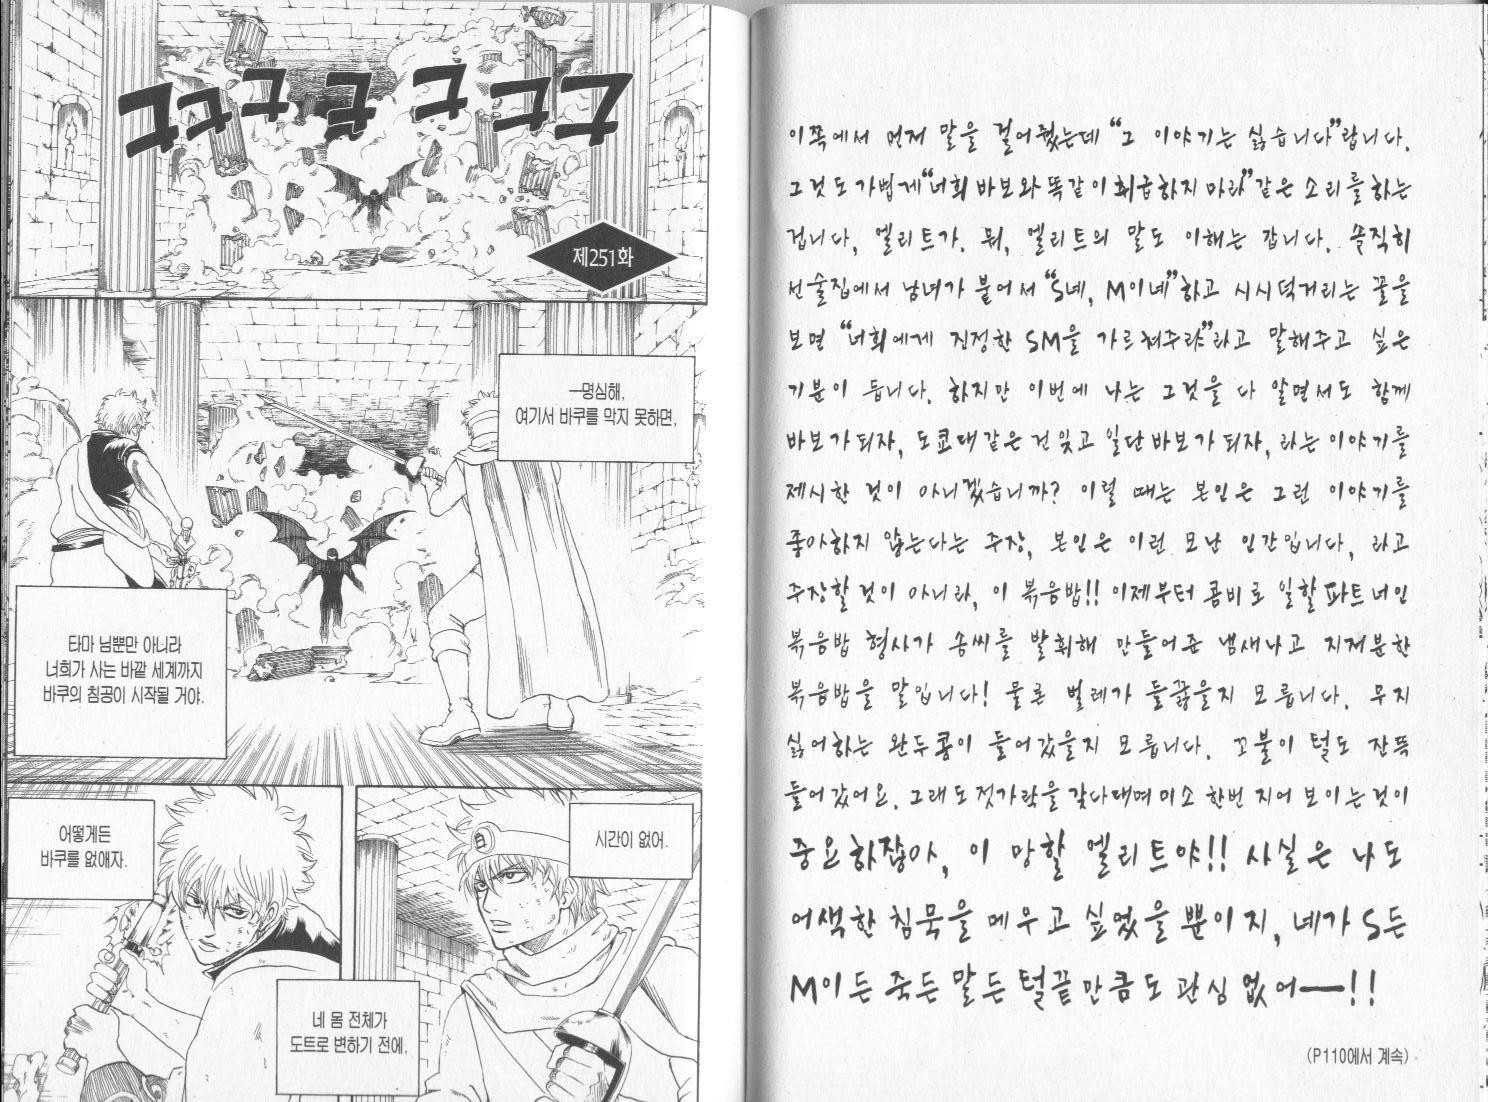 구구구구구구구
제251화
―명심해,
여기서 바쿠를 막지 못하면,
타마 님뿐만 아니라
너희가 사는 바깥 세계까지
바쿠의 침공이 시작될 거야.
어떻게든
바쿠를 없애자.
시간이 없어.
네 몸 전체가
도트로 변하기 전에,
이쪽에서 먼저 말을 걸어줬는데 “그 이야기는 싫습니다”랍니다.
그것도 가볍게 “너희 바보와 똑같이 취급하지 마라” 같은 소리를 하는
겁니다, 엘리트가. 뭐, 엘리트의 말도 이해는 갑니다. 솔직히
선술집에서 남녀가 붙어서 “S네, M이네” 하고 시시덕거리는 꼴을
보면 “너희에게 진정한 SM을 가르쳐주랴”라고 말해주고 싶은
기분이 듭니다. 하지만 이번에 나는 그것을 다 알면서도 함께
바보가 되자, 도쿄대 같은 건 잊고 일단 바보가 되자, 라는 이야기를
제시한 것이 아니겠습니까? 이럴 때는 본인은 그런 이야기를
좋아하지 않는다는 주장, 본인은 이런 모난 인간입니다, 라고
주장할 것이 아니라, 이 볶음밥!! 이제부터 콤비로 일할 파트너인
볶음밥 형사가 솜씨를 발휘해 만들어준 냄새나고 지저분한
볶음밥을 말입니다! 물론 벌레가 들끓을지 모릅니다. 무지
싫어하는 완두콩이 들어갔을지 모릅니다. 꼬불이 털도 잔뜩
들어갔어요. 그래도 젓가락을 갖다대며 미소 한번 지어 보이는 것이
중요하잖아, 이 망할 엘리트야!! 사실은 나도
어색한 침묵을 메우고 싶었을 뿐이지, 네가 S든
M이든 죽든 말든 털끝만큼도 관심 없어―!!
(P110에서 계속)